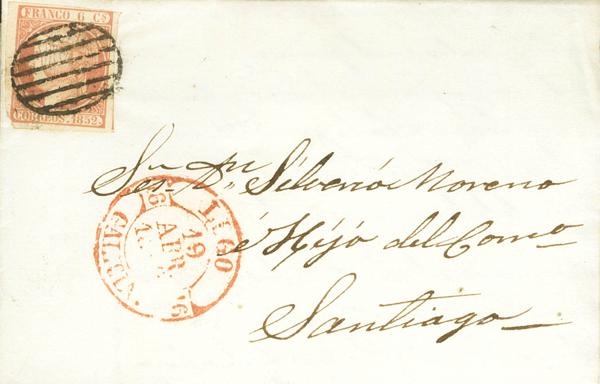 FRANCO 6 CS
CORREOS. 1852.
Sr. Dn. Silverio Moreno
é Hijo del Como
Santiago
LUGO
19
ABR
GALICIA
6
6